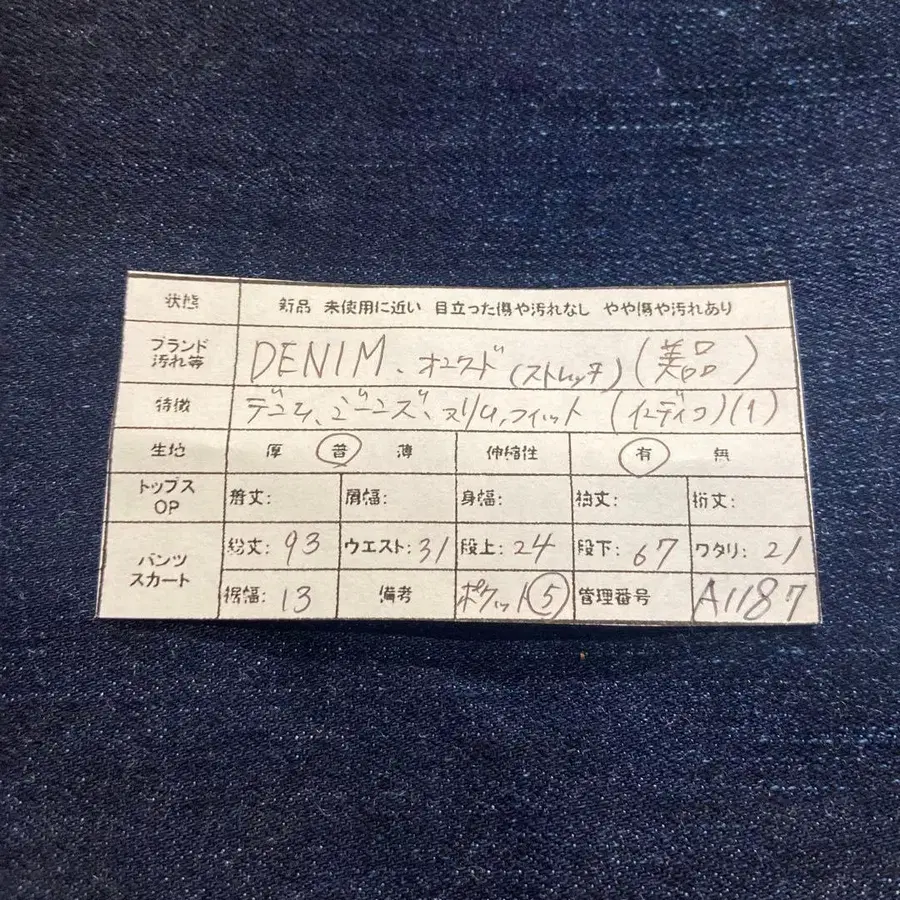 状態 新品 未使用に近い 目立った傷や汚れなし やや傷や汚れあり
ブランド
汚れ等 DENIM、オンワード (ストレッチ) (美品)
特徴 デニム、ジーンズ、スリム、フィット (インディゴ)(1)
生地 厚 普 薄 伸縮性 有 無
トップス
OP 着丈: 肩幅: 身幅: 袖丈: 裄丈:
パンツ
スカート 総丈: 93 ウエスト: 31 股上: 24 股下: 67 ワタリ: 21
裾幅: 13 備考 ポケット⑤ 管理番号 A1187